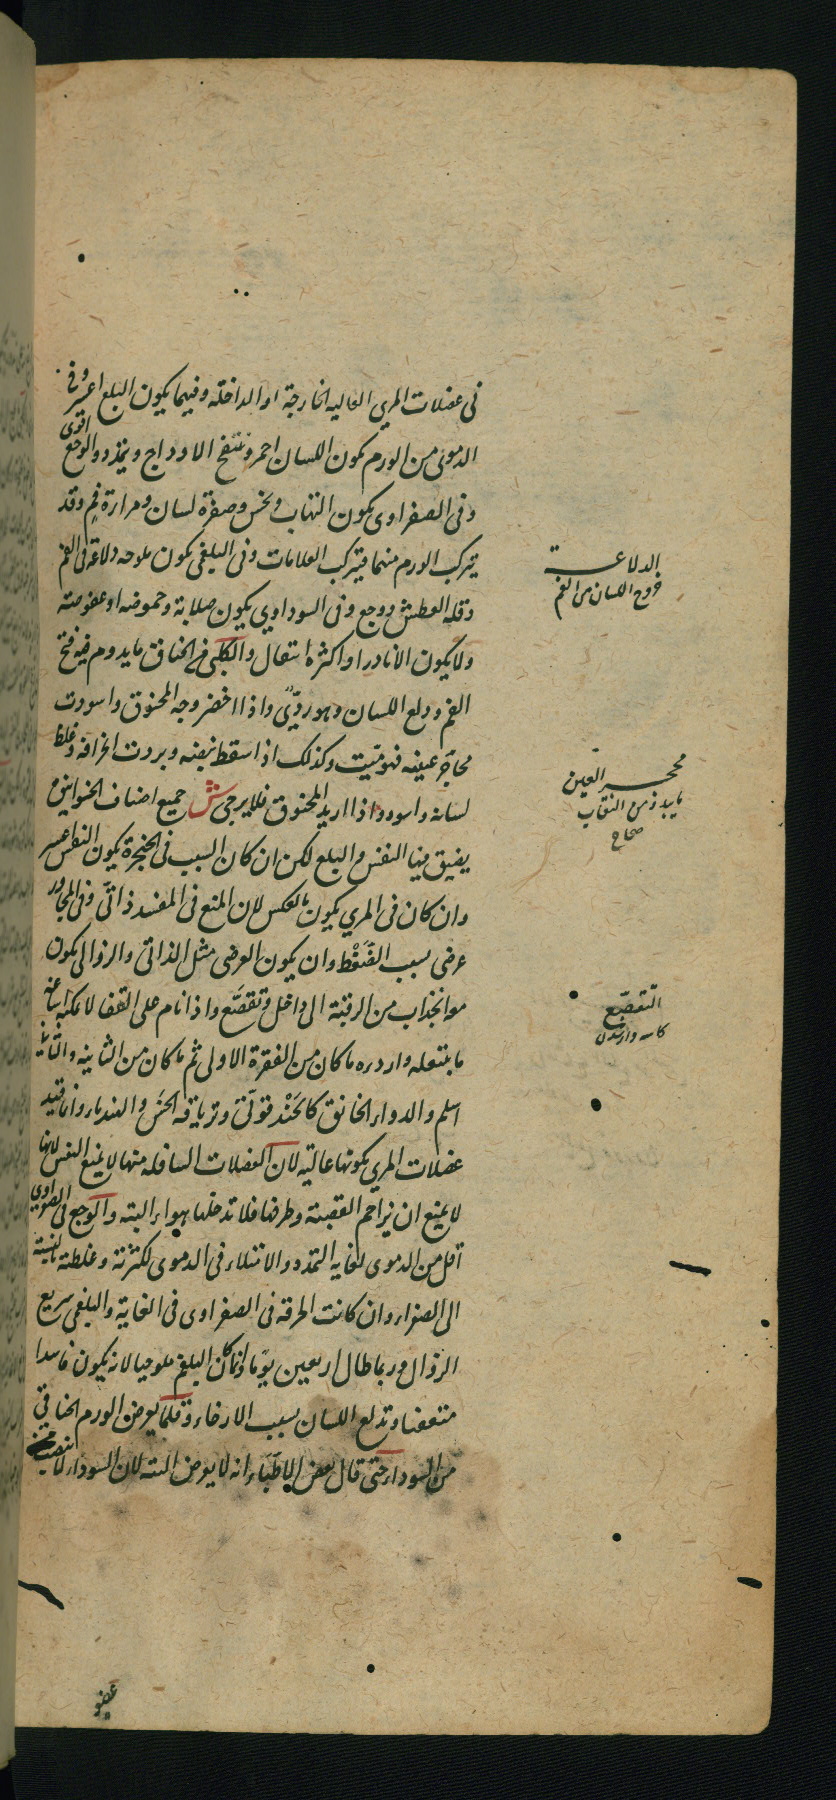 فى عضلات المرى العاليه الخارجة او الداخله وفيما يكون البلع اعسر وفى
الدموى من الورم يكون اللسان احمر وتنتفخ الاوداج ويتمدد والوجع اقوى
وفى الصفراوى يكون التهاب ونخس وصفرة لسان ومرارة فم وقد
يتركب الورم منهما فيتركب العلامات وفى البلغمى يكون ملوحه ودلاعة فى الفم
وقله العطش ووجع وفى السوداوي يكون صلابة وحموضه او عفوصته
ولا يكون الا نادرا واكثره انتقال والكلبى فى الخناق ما يدوم فيه فتح
الفم ودلع اللسان وهو ردىّ واذا اخضر وجه المخنوق واسودت
محاجر عينه فهو ميّت وكذلك اذا سقط نبضه وبردت اطرافه وغلظ
لسانه واسود واذا ازبد المخنوق فلا يرجى ش جميع اصناف الخوانيق
يضيق فيها النفس والبلع لكن ان كان السبب فى الحنجرة يكون النفس اعسر
وان كان فى المري يكون بالعكس لان المنع فى المفسد ذاتىّ وفى المجاور
عرضى بسبب الضغط وان يكون العرضى مثل الذاتى والزوالى يكون
مع انجذاب من الرقبة الى داخل وتقصّع واذا نام على القفا لا يمكنه اساغة
ما يبتلعه واردره ما كان من الفقرة الاولى ثم ما كان من الثانيه والثالثة
اسلم والدواء الخانق كالخ
عضلات المرى بكونها عالية لان العضلات السافله منها لا يمنع النفس لانها
لا يمنع ان يزاحم القصبة وطرفها فلا تدخلها هواء البته والوجع فى الصفراوي
اقل من الدموى لغايه التمدد والامتلاء فى الدموى لكثرته وغلظته بالنسبة
الى الصفراء وان كانت الحرقه فى الصفراوى فى الغاية والبلغمى سريع
الزوال وربما طال اربعين يوما وانما كان البلغم ملوحيا لانه يكون فاسدا
متعفنا وتدلع اللسان بسبب الارخاء وقلما يعرض الورم الخناقى
من السوداء حتى قال بعض الاطبّاء انه لا يعرض البته لان السوداء لا ينصب
عضو
الدلاعة
خروج اللسان من الفم
محجر العين
ما يبدو من النقاب
صحاح
التقصّع